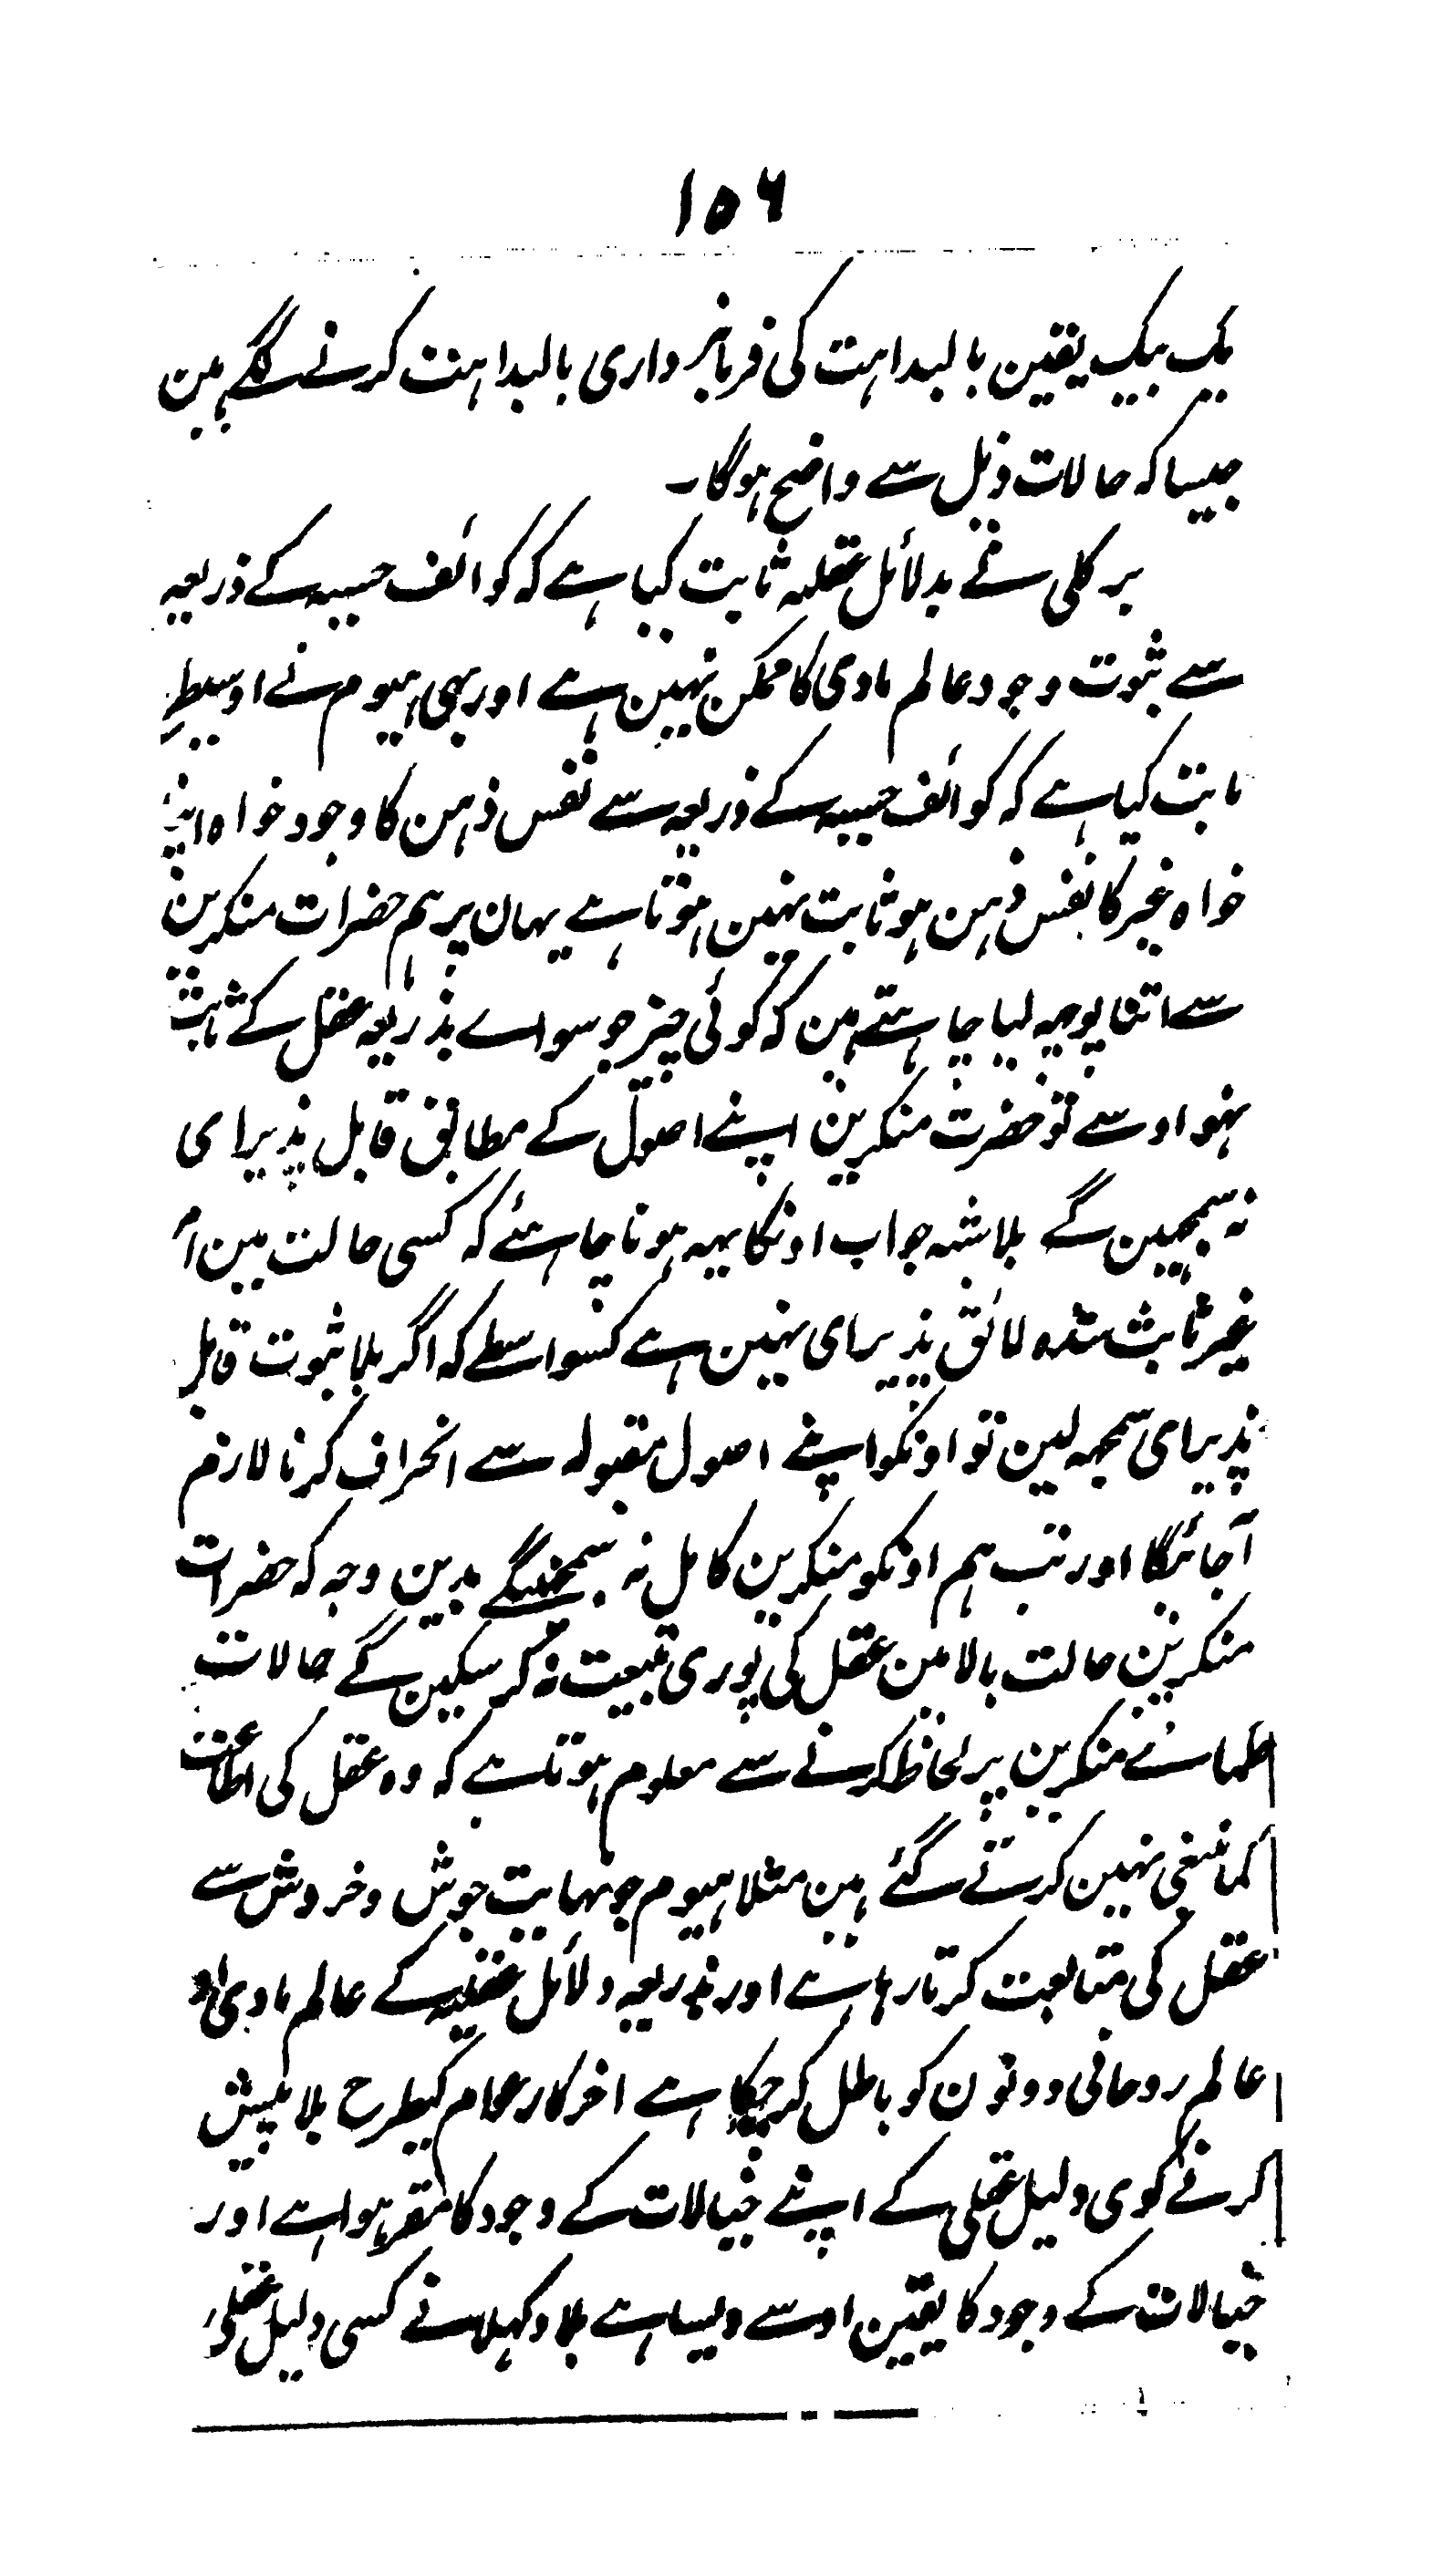 ۱۵۶
یک بیک یقین بالبداہت کی فرمانبرداری بالبداہت کرنے لگے ہین
جیسا کہ حالات ذیل سے واضح ہوگا۔
برکلی نے بدلائل عقلیہ ثابت کیا ہے کہ کوائف حسیہ کے ذریعہ
سے ثبوت وجود عالم مادی کا ممکن نہین ہے اور بہی ہیوم نے اوسیطرح
ثابت کیا ہے کہ کوائف حسیہ کے ذریعہ سے نفس ذہن کا وجود خواہ اپنے
خواہ غیر کا نفس ذہن ہو ثابت نہین ہوتا ہے یہان پر ہم حضرات منکرین
سے اتنا پوچہہ لیا چاہتے ہین کہ کوئی چیز جو سواے بذریعہ عقل کے ثابت
نہو اوسے تو حضرت منکرین اپنے اصول کے مطابق قابل پذیرای
نہ سمجہین گے بلاشبہ جواب اونکا یہہ ہونا چاہئے کہ کسی حالت مین
غیر ثابت شدہ لائق پذیرای نہین ہے کسواسطے کہ اگر بلا ثبوت قابل
پذیرای سمجہہ لین تو اونکو اپنے اصول مقبولہ سے انحراف کرنا لازم
آجائیگا اور تب ہم اونکو منکرین کامل نہ سمجھینگے بدین وجہ کہ حضرات
منکرین حالت بالا مین عقل کی پوری تبعیت نہ کر سکین گے حالات
علماے منکرین پر لحاظ کرنے سے معلوم ہوتا ہے کہ وہ عقل کی اطاعت
کما ینبغی نہین کرتے گئے ہین مثلا ہیوم جو نہایت جوش و خروش سے
عقل کی متابعت کرتا رہا ہے اور بذریعہ دلائل عقلیہ کے عالم مادی اور
عالم روحانی دونون کو باطل کر چکا ہے اخرکار عوام کیطرح بلا پیش
کرنے کوی دلیل عقلی کے اپنے خیالات کے وجود کا مقر ہوا ہے اور
خیالات کے وجود کا یقین اوسے ویسا ہے بلا دکہلانے کسی دلیل عقلی